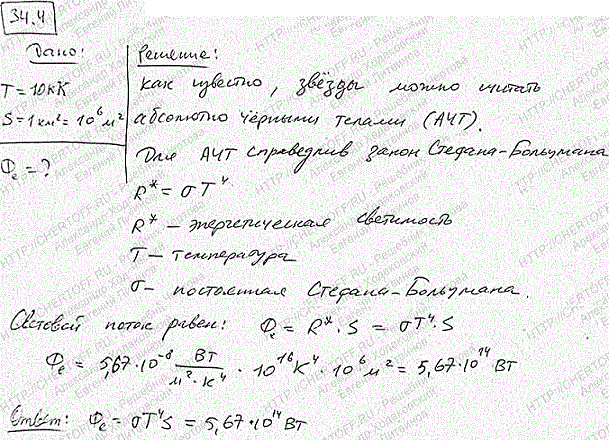 34.4
Дано:
T = 10кК
S = 1км² = 10⁶ м²
Фe = ?
Решение:
Как известно, звёзды можно читать
абсолютно чёрными телами (АЧТ).
Для АЧТ справедлив закон Стефана-Больцмана
R* = σT⁴
R* – энергетическая светимость
T – температура
σ – постоянная Стефана-Больцмана.
Световой поток равен: Фe = R*·S = σT⁴·S
Фe = 5,67·10⁻⁸ Вт/(м²·К⁴) · 10¹⁶К⁴ · 10⁶ м² = 5,67·10¹⁴ Вт
Ответ: Фe = σT⁴S = 5,67·10¹⁴ Вт
HTTP://CHERTOFF.RU - Решебник
Александр Харьковский
Евгений Литвинов